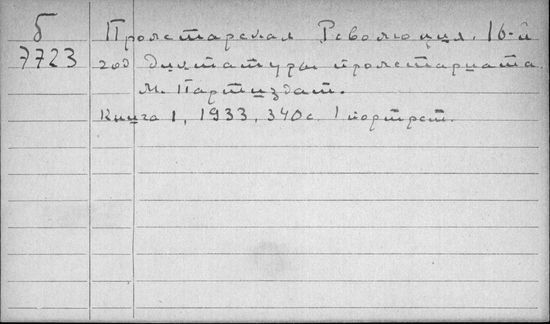 б
7723
Пролетарская Революция. 16-й
год диктатуры пролетариата.
М. Партиздат.
Книга 1, 1933, 340с. 1 портрет.